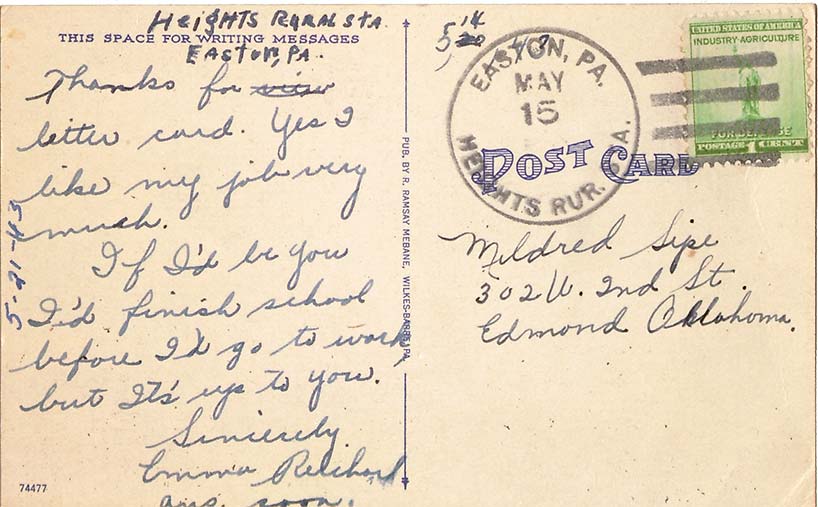 Heights Rural Sta
THIS SPACE FOR WRITING MESSAGES
Easton, PA.
Thanks for view
letter card. Yes I
like my job very
much.
If I'd be you
I'd finish school
before I'd go to work
but It's up to you.
Sincerely
Emma Reichard
ans. soon.
5-21-43
74477
PUB. BY R. RAMSAY MEBANE, WILKES-BARRE, PA.
5, 14
EASTON, PA.
MAY
15
HEIGHTS RUR. STA.
UNITED STATES OF AMERICA
INDUSTRY-AGRICULTURE
FOR DEFENSE
POSTAGE 1 CENT
POST CARD
Mildred Sipe
302 W. 2nd St.
Edmond Oklahoma.